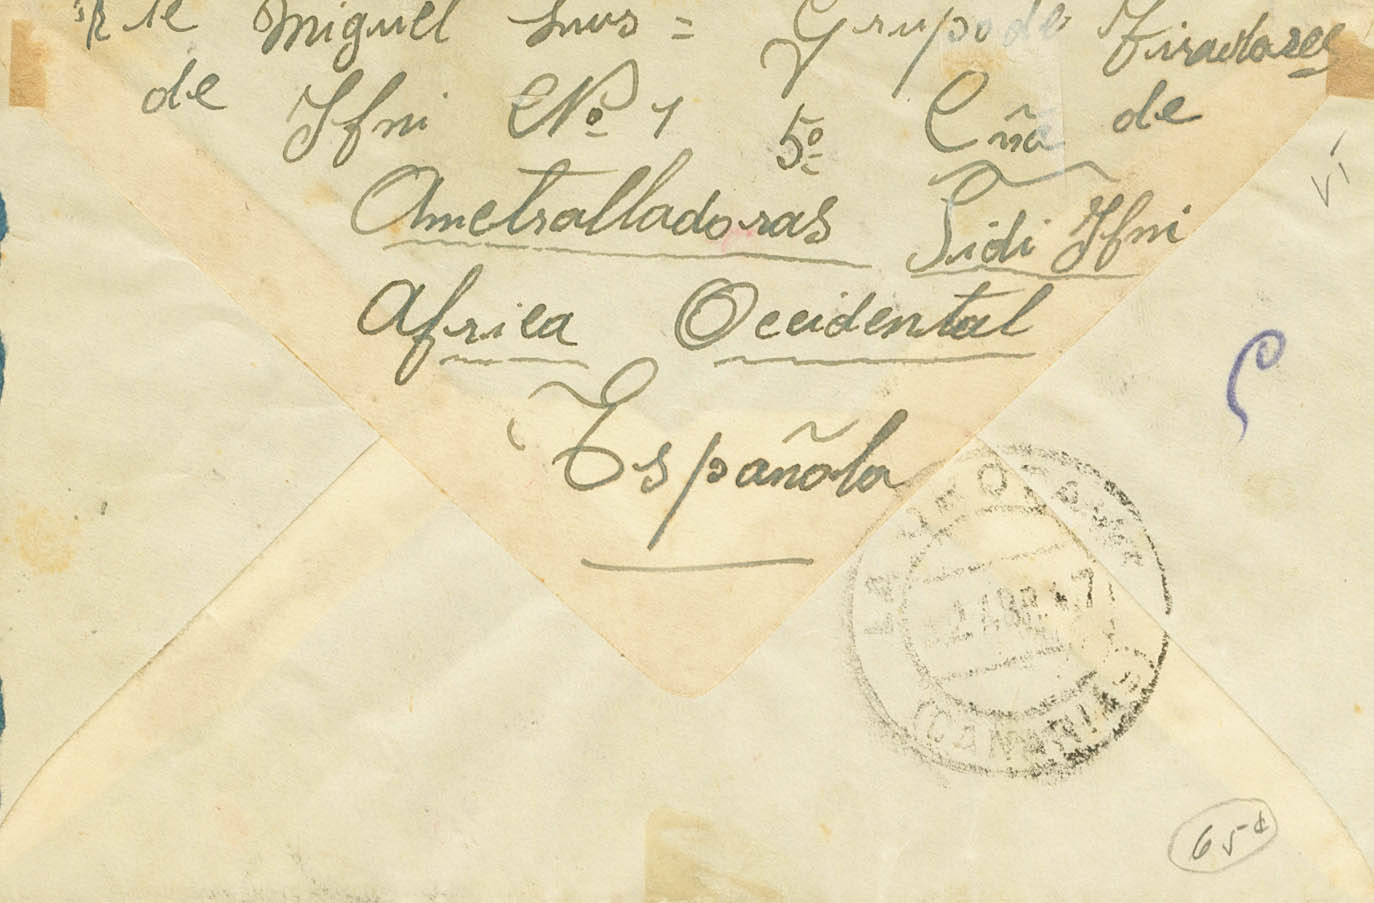 Rte Miguel Luis = Grupo de Tiradores
de Ifni Nº 1 5º Cñá de
Ametralladoras Sidi Ifni
Africa Occidental
Española
LA OROTAVA
ABR 47
(CANARIAS)
65¢